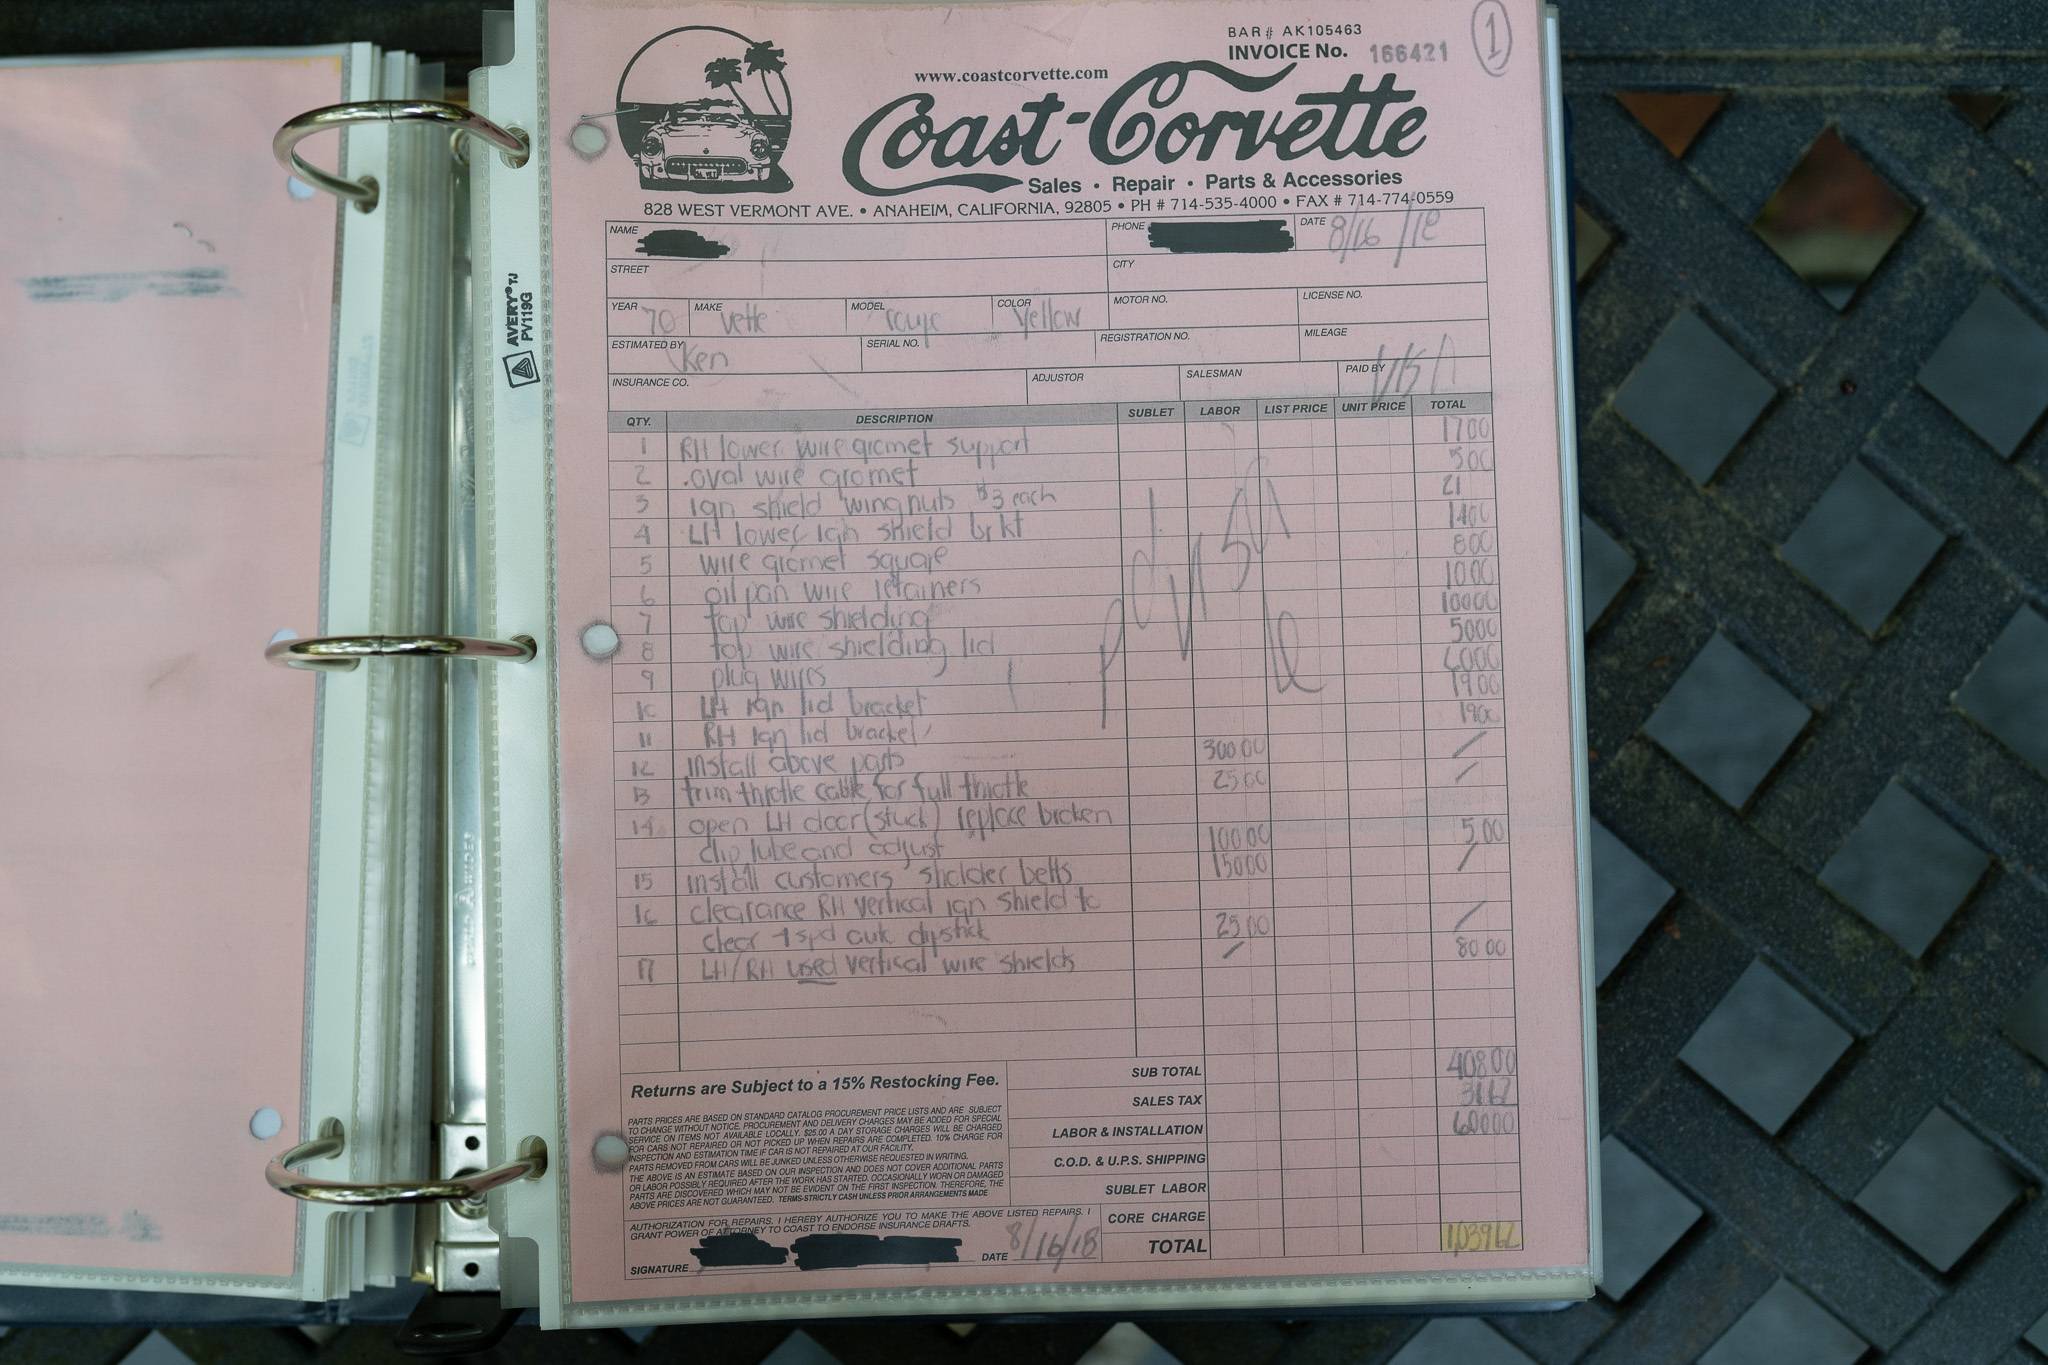 BAR # AK105463
INVOICE No. 166421
1
www.coastcorvette.com
Coast-Corvette
Sales • Repair • Parts & Accessories
828 WEST VERMONT AVE. • ANAHEIM, CALIFORNIA, 92805 • PH # 714-535-4000 • FAX # 714-774-0559
NAME PHONE DATE 8/16/18
STREET CITY
YEAR 70 MAKE Vette MODEL coupe COLOR Yellow MOTOR NO. LICENSE NO.
ESTIMATED BY Ken SERIAL NO. REGISTRATION NO. MILEAGE
INSURANCE CO. ADJUSTOR SALESMAN PAID BY VISA
QTY. DESCRIPTION SUBLET LABOR LIST PRICE UNIT PRICE TOTAL
1 RH lower wire gromet support 1700
2 .oval wire gromet 500
3 Ign shield wingnuts $3 each 21
4 LH lower ign shield brkt 1400
5 wire gromet square 800
6 oil pan wire retainers 1000
7 top wire shielding 10000
8 top wire shielding lid 5000
9 plug wires 6000
10 LH ign lid bracket 1900
11 RH ign lid bracket 1900
12 install above parts 30000 /
13 trim throtle cable for full throtle 2500 /
14 open LH door (stuck) replace broken
clip lube and adjust 10000 5.00
15 install customers sholder belts 15000 /
16 clearance RH vertical ign shield to
clear 4spd auk dipstick 2500 /
17 LH/RH used vertical wire shields / 80 00
pd VISA
Returns are Subject to a 15% Restocking Fee.
PARTS PRICES ARE BASED ON STANDARD CATALOG PROCUREMENT PRICE LISTS AND ARE SUBJECT
TO CHANGE WITHOUT NOTICE. PROCUREMENT AND DELIVERY CHARGES MAY BE ADDED FOR SPECIAL
SERVICE ON ITEMS NOT AVAILABLE LOCALLY. $25.00 A DAY STORAGE CHARGES WILL BE CHARGED
FOR CARS NOT REPAIRED OR NOT PICKED UP WHEN REPAIRS ARE COMPLETED. 10% CHARGE FOR
INSPECTION AND ESTIMATION TIME IF CAR IS NOT REPAIRED AT OUR FACILITY.
PARTS REMOVED FROM CARS WILL BE JUNKED UNLESS OTHERWISE REQUESTED IN WRITING.
THE ABOVE IS AN ESTIMATE BASED ON OUR INSPECTION AND DOES NOT COVER ADDITIONAL PARTS
OR LABOR POSSIBLY REQUIRED AFTER THE WORK HAS STARTED. OCCASIONALLY WORN OR DAMAGED
PARTS ARE DISCOVERED WHICH MAY NOT BE EVIDENT ON THE FIRST INSPECTION. THEREFORE, THE
ABOVE PRICES ARE NOT GUARANTEED. TERMS-STRICTLY CASH UNLESS PRIOR ARRANGEMENTS MADE
SUB TOTAL 40800
SALES TAX 3162
LABOR & INSTALLATION 60000
C.O.D. & U.P.S. SHIPPING
SUBLET LABOR
CORE CHARGE
TOTAL 1,03962
AUTHORIZATION FOR REPAIRS. I HEREBY AUTHORIZE YOU TO MAKE THE ABOVE LISTED REPAIRS. I
GRANT POWER OF ATTORNEY TO COAST TO ENDORSE INSURANCE DRAFTS.
SIGNATURE DATE 8/16/18
AVERY® TJ
PV119G